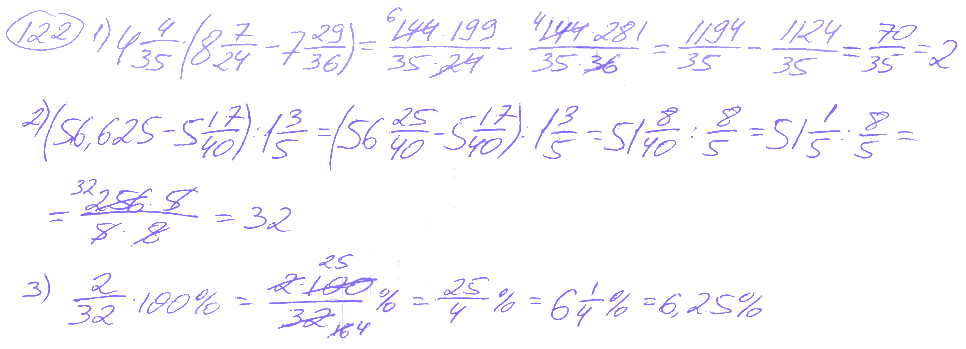 122 1) 4 4/35 (8 7/24 - 7 29/36) = 144·199/35·24 - 144·281/35·36 = 1194/35 - 1124/35 = 70/35 = 2
2) (56,625 - 5 17/40) : 1 3/5 = (56 25/40 - 5 17/40) : 1 3/5 = 51 8/40 : 8/5 = 51 1/5 : 8/5 =
= 256·5/5·8 = 32
3) 2/32 · 100% = 2·100/32 % = 25/4 % = 6 1/4 % = 6,25%